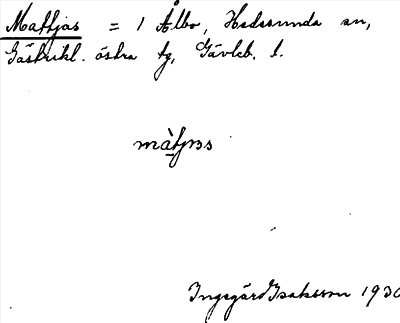 Mathjas = 1 Ålbo, Hedesunda sn,
Gästrikl. östra tg, Gävleb. l.
Ingegärd Isaksson 1930